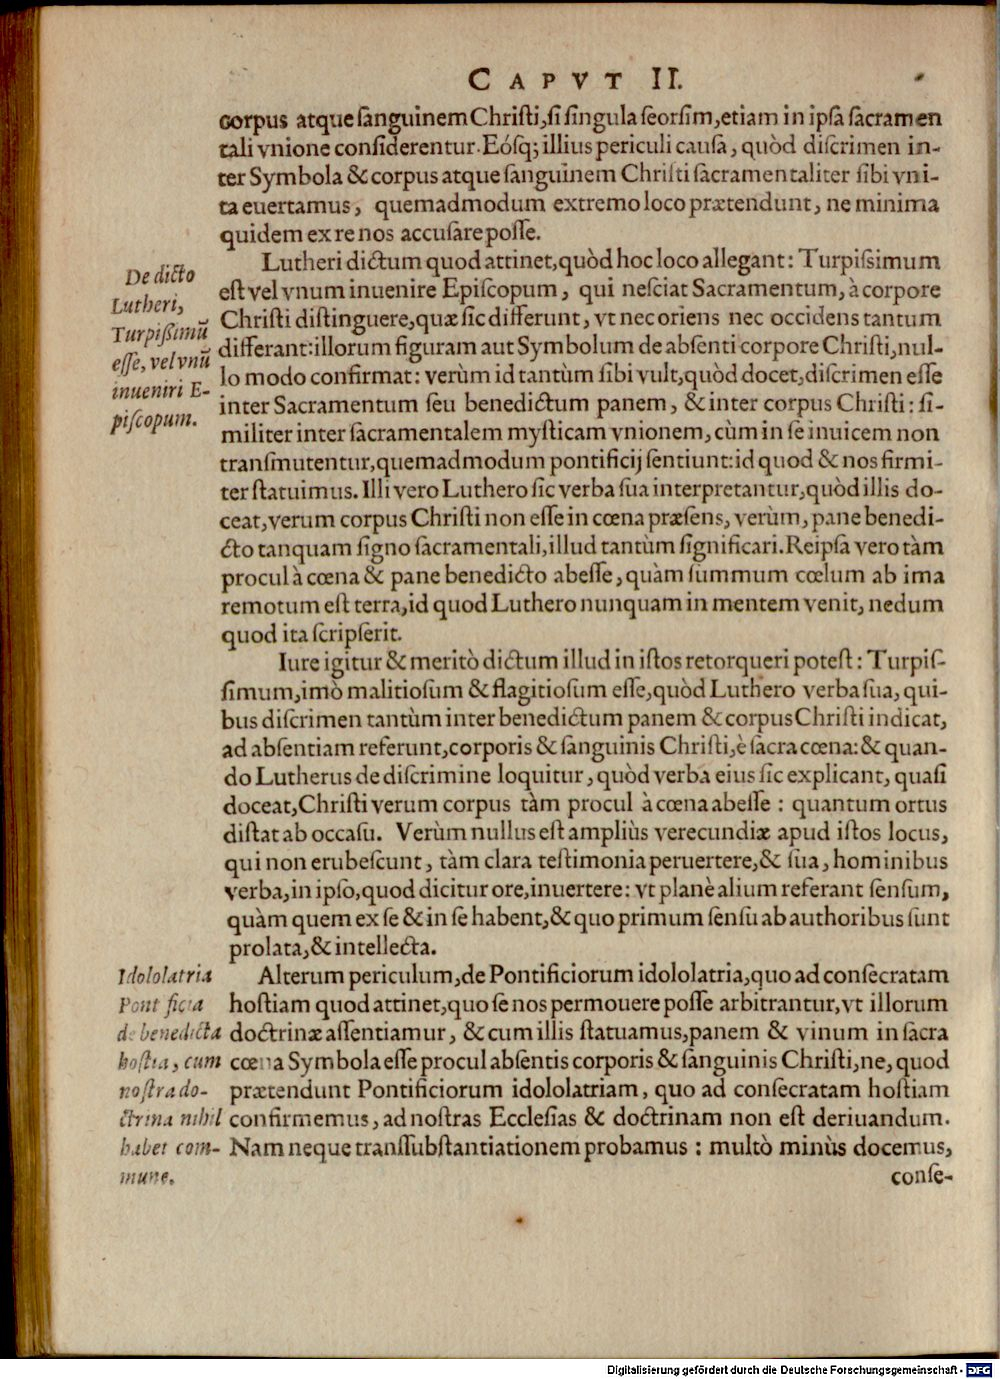 CAPVT II.
corpus atque ſanguinem Chriſti, ſi ſingula ſeorſim, etiam in ipſa ſacramen
tali vnione conſiderentur. Eóſq; illius periculi cauſa, quòd diſcrimen in-
ter Symbola & corpus atque ſanguinem Chriſti ſacramentaliter ſibi vni-
ta euertamus, quemadmodum extremo loco prætendunt, ne minima
quidem ex re nos accuſare poſſe.
De dicto
Lutheri,
Turpißimũ
eſſe, vel vnũ
inueniri E-
piſcopum.
Lutheri dictum quod attinet, quòd hoc loco allegant: Turpiſsimum
eſt vel vnum inuenire Epiſcopum, qui neſciat Sacramentum, à corpore
Chriſti diſtinguere, quæ ſic differunt, vt nec oriens nec occidens tantum
differant: illorum figuram aut Symbolum de abſenti corpore Chriſti, nul-
lo modo confirmat: verùm id tantùm ſibi vult, quòd docet, diſcrimen eſſe
inter Sacramentum ſeu benedictum panem, & inter corpus Chriſti: ſi-
militer inter ſacramentalem myſticam vnionem, cùm in ſe inuicem non
tranſmutentur, quemadmodum pontificij ſentiunt: id quod & nos firmi-
ter ſtatuimus. Illi vero Luthero ſic verba ſua interpretantur, quòd illis do-
ceat, verum corpus Chriſti non eſſe in cœna præſens, verùm, pane benedi-
cto tanquam ſigno ſacramentali, illud tantùm ſignificari. Reipſa vero tàm
procul à cœna & pane benedicto abeſſe, quàm ſummum cœlum ab ima
remotum eſt terra, id quod Luthero nunquam in mentem venit, nedum
quod ita ſcripſerit.
Iure igitur & meritò dictum illud in iſtos retorqueri poteſt: Turpiſ-
ſimum, imò malitioſum & flagitioſum eſſe, quòd Luthero verba ſua, qui-
bus diſcrimen tantùm inter benedictum panem & corpus Chriſti indicat,
ad abſentiam referunt, corporis & ſanguinis Chriſti, è ſacra cœna: & quan-
do Lutherus de diſcrimine loquitur, quòd verba eius ſic explicant, quaſi
doceat, Chriſti verum corpus tàm procul à cœna abeſſe: quantum ortus
diſtat ab occaſu. Verùm nullus eſt ampliùs verecundiæ apud iſtos locus,
qui non erubeſcunt, tàm clara teſtimonia peruertere, & ſua, hominibus
verba, in ipſo, quod dicitur ore, inuertere: vt planè alium referant ſenſum,
quàm quem ex ſe & in ſe habent, & quo primum ſenſu ab authoribus ſunt
prolata, & intellecta.
Idololatria
Pontificia
de benedicta
hoſtia, cum
noſtra do-
ctrina nihil
habet com-
mune.
Alterum periculum, de Pontificiorum idololatria, quo ad conſecratam
hoſtiam quod attinet, quo ſe nos permouere poſſe arbitrantur, vt illorum
doctrinæ aſſentiamur, & cum illis ſtatuamus, panem & vinum in ſacra
cœna Symbola eſſe procul abſentis corporis & ſanguinis Chriſti, ne, quod
prætendunt Pontificiorum idololatriam, quo ad conſecratam hoſtiam
confirmemus, ad noſtras Eccleſias & doctrinam non eſt deriuandum.
Nam neque tranſſubſtantiationem probamus: multò minùs docemus,
conſe-
Digitalisierung gefördert durch die Deutsche Forschungsgemeinschaft - DFG